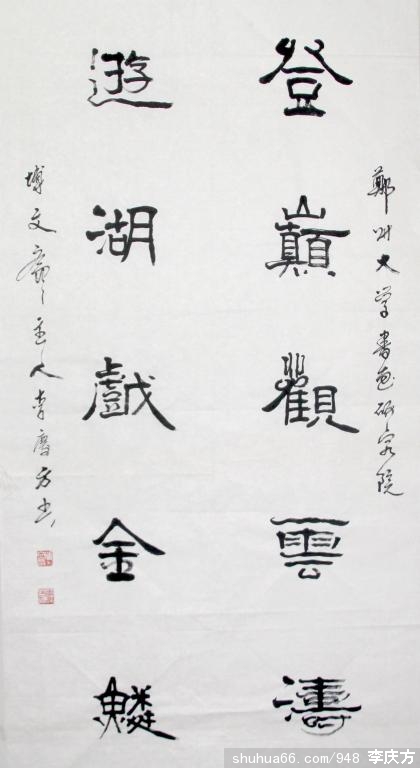 鄭州大学書画研究院
登巔觀雲濤
遊湖戲金鱗
博文齋主人李慶方书
shuhua66.com/948 李庆方